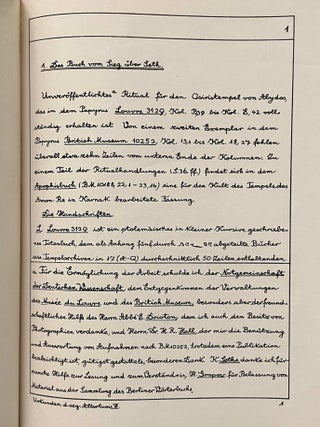 1
1. Das Buch vom Sieg über Seth.
Unveröffentlichtes Ritual für den Osiristempel von Abydos,
das in dem Papyrus Louvre 3129, Kol. B,39 bis Kol. E, 42 voll-
ständig erhalten ist. Von einem zweiten Exemplar in dem
Papyrus British Museum 10252, Kol. 13,1 bis Kol. 18, 27 fehlen
überall etwa zehn Zeilen vom unteren Ende der Kolumnen. Zu
einem Teil der Ritualhandlungen (S.36.ff) findet sich in dem
Apophisbuch (B.M. 10188, 22,1 - 23,16) eine für den Kult des Tempels des
Amon Re in Karnak bearbeitete Fassung.
Die Handschriften
L Louvre 3129 ist ein ptolemäisches in kleiner Kursive geschriebe-
nes Totenbuch, dem als Anhang fünf durch abgeteilte Bücher
aus Tempelarchiven in 17 durchschnittlich 50 Zeilen enthaltenden
Für die Ermöglichung der Arbeit schulde ich der Notgemeinschaft
der Deutschen Wissenschaft, dem Entgegenkommen der Verwaltungen
des Musée du Louvre und des British Museum, besonders aber der freund-
schaftlichen Hilfe des Herrn Abbé E. Drioton, dem ich auch den Besitz von
Photographien verdanke, und Herrn Dr. H. R. Hall, der mir die Benützung
und Auswertung von Aufnahmen nach B.M. 10252, trotzdem eine Publikation
beabsichtigt ist, gütigst gestattete, besonderen Dank. K. Sethe danke ich für
manche Hilfe zur Lesung und zum Verständnis, H. Grapow für Ueberlassung von
Material aus der Sammlung des Berliner Wörterbuchs.
Urkunden d. aeg. Altertums VI. 1